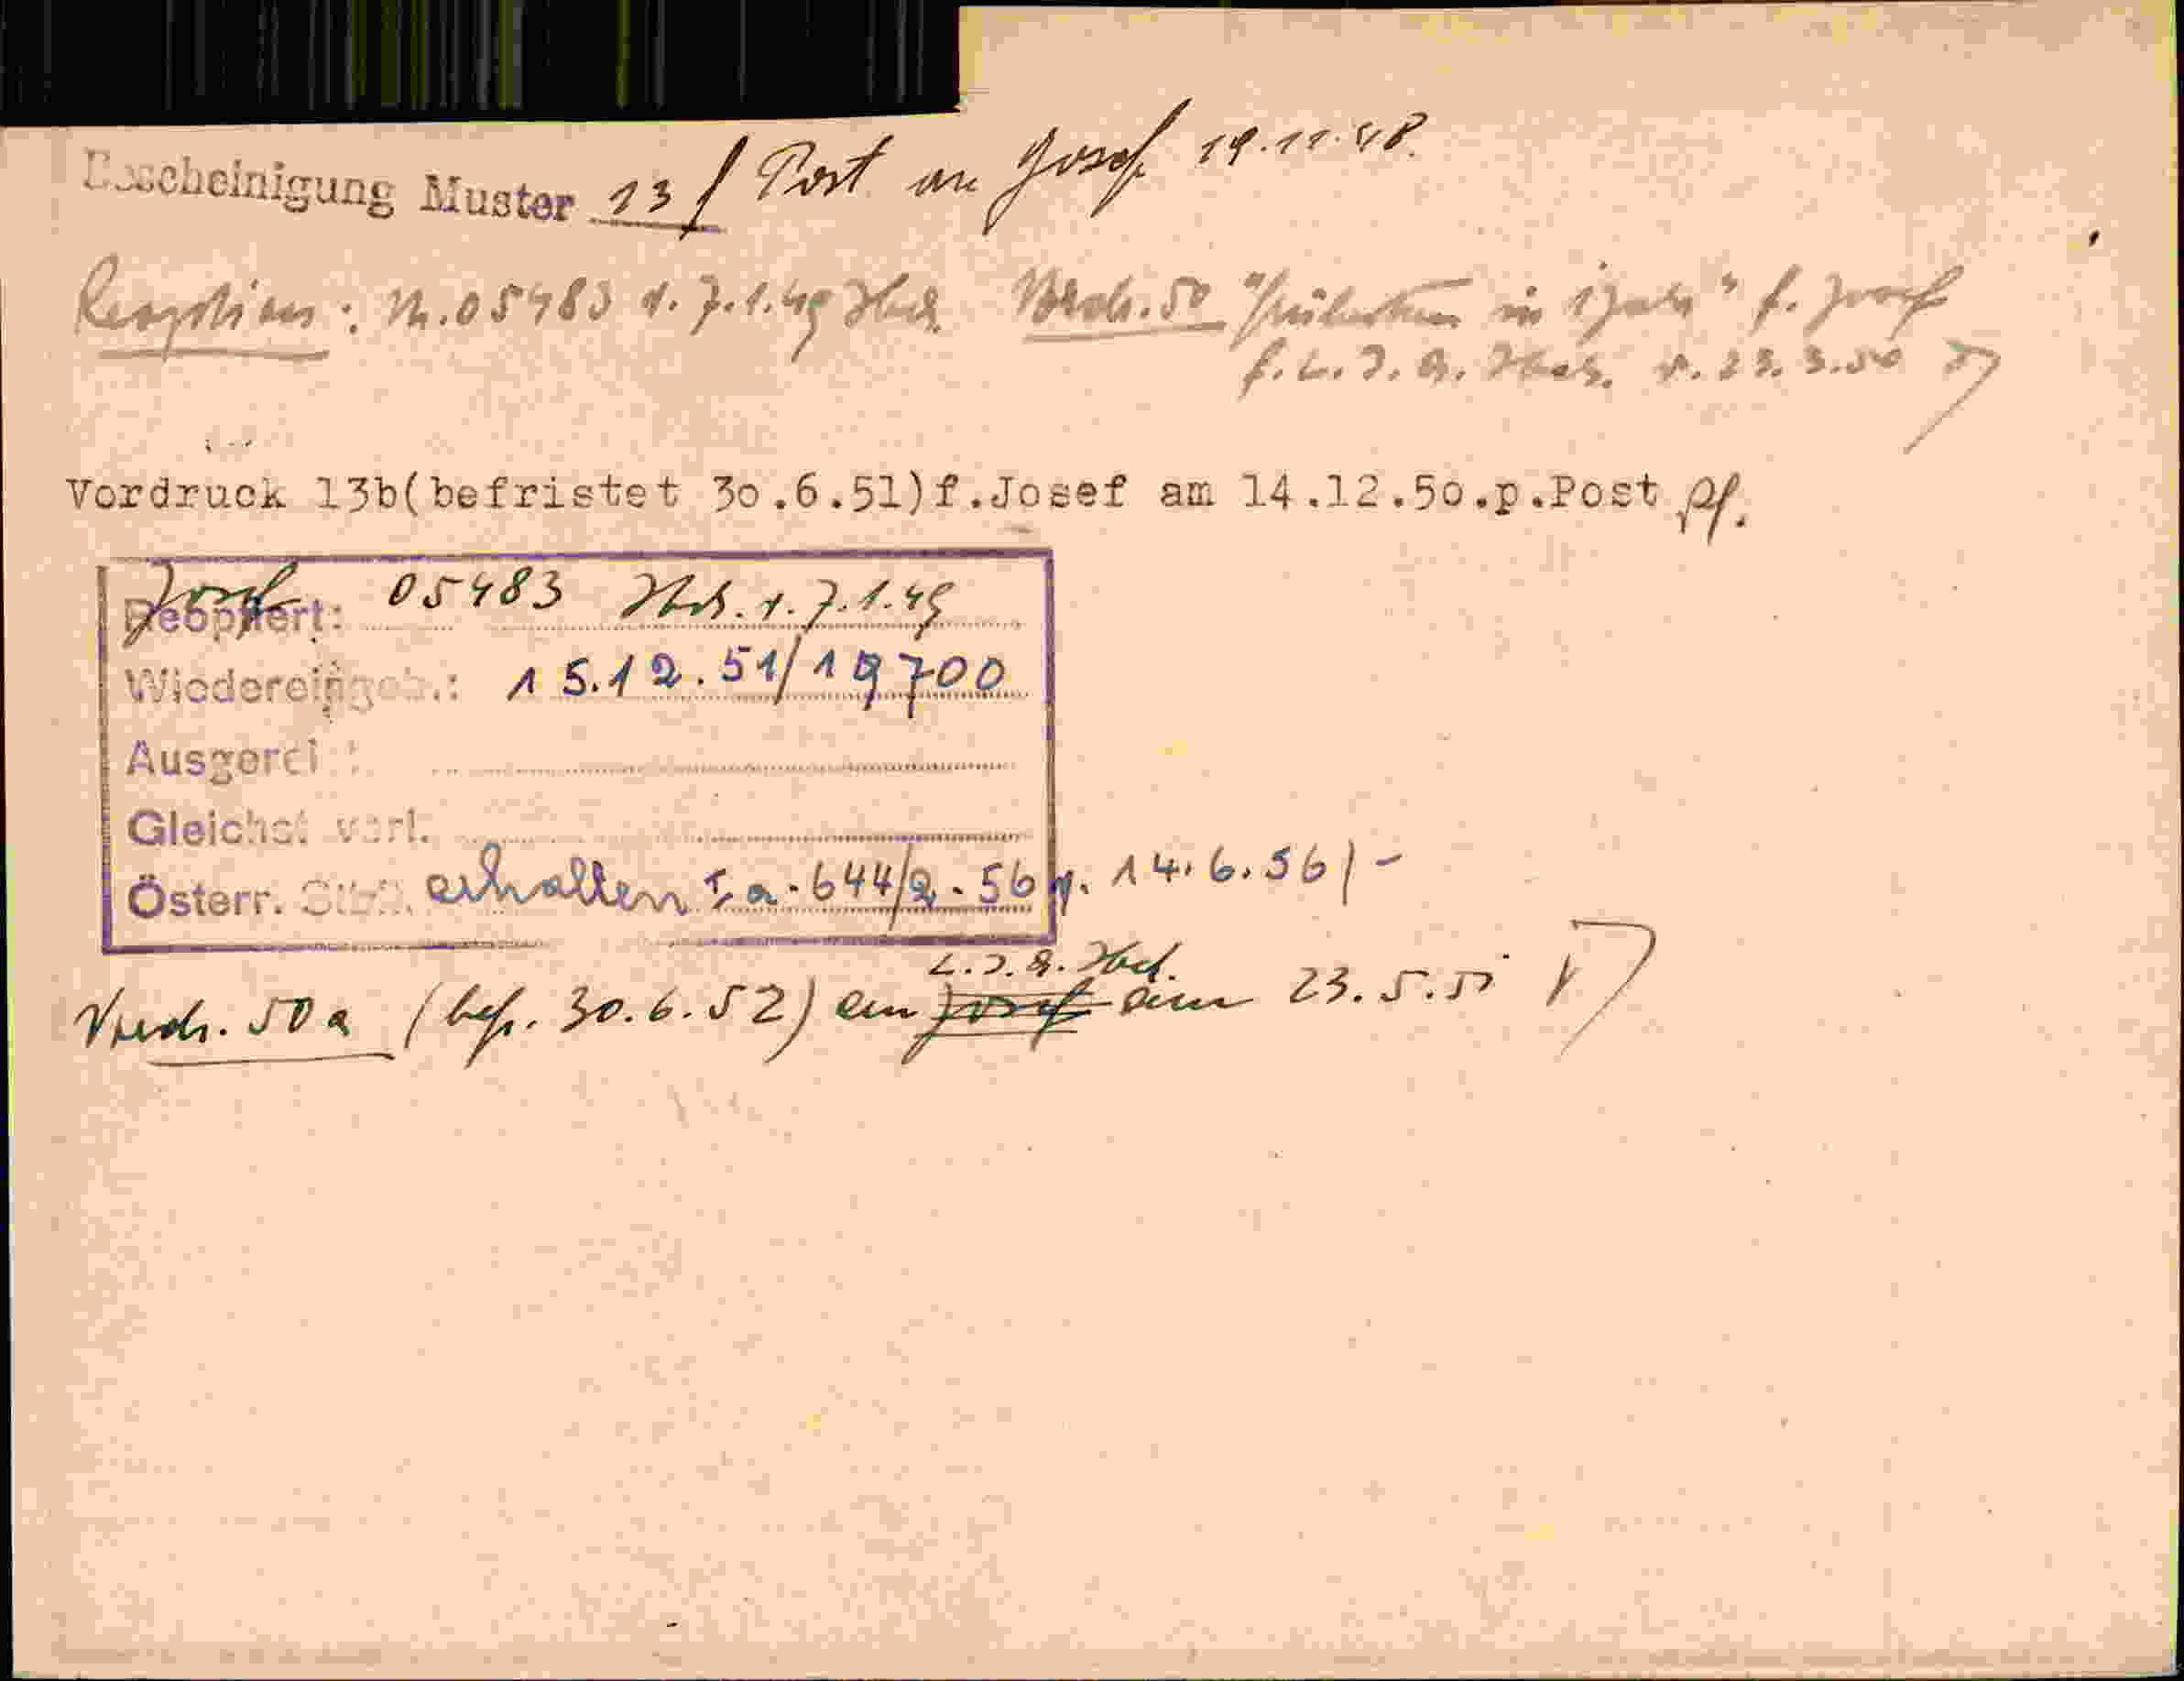 Bescheinigung Muster 13 / Post an Josef 19.11.48.
Reoption: Nr. 05483 v. 7.1.49 Ibck. Vordr. 50 in 1 Jahr" f. Josef
f. L. I. A. Ibck. v. 23.3.50
Vordruck 13b(befristet 30.6.51)f.Josef am 14.12.50.p.Post
Josef
Reoptiert: 05483 Ibck. v. 7.1.49
Wiedereingeb.: 15.12.51/19700
Ausgerei :
Gleichst verl.
Österr. Stb. erhalten I a - 644/2 - 56 v. 14.6.56 / -
L. I. A. Ibck.
Vordr. 50 a (bef. 30.6.52) an Josef am 23.5.51